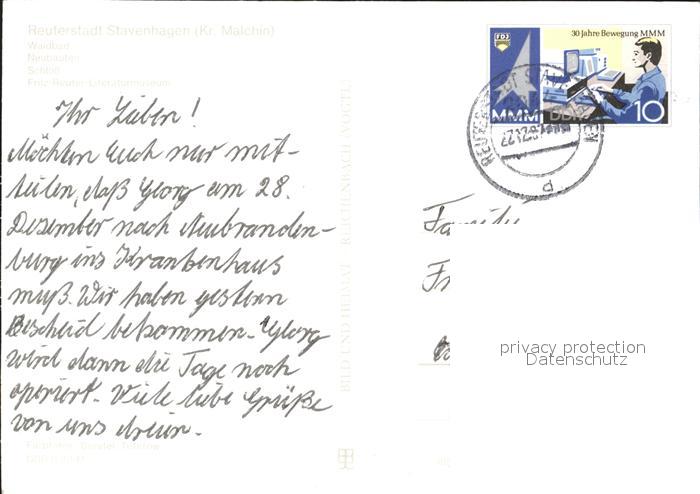 Reuterstadt Stavenhagen (Kr. Malchin)
Waldbad
Neubauten
Schloß
Fritz-Reuter-Literaturmuseum
Ihr Lieben!
Möchten Euch nur mit-
teilen, daß Georg am 28.
Dezember nach Neubranden-
burg ins Krankenhaus
muß. Wir haben gestern
Bescheid bekommen. Georg
wird dann die Tage noch
operiert. Viele liebe Grüße
von uns dreien.
BILD UND HEIMAT REICHENBACH (VOGTL)
FDJ
30 Jahre Bewegung MMM
MMM DDR 10
REUTERSTADT STAVENHAGEN
Familie
Fr
privacy protection
Datenschutz